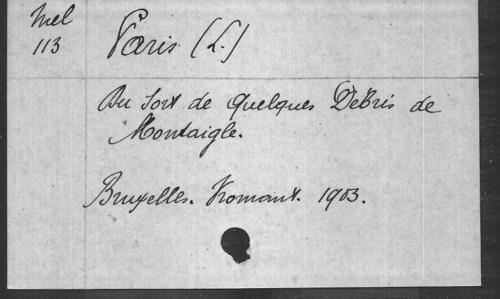 Mel
113
Paris (L.)
Du Sort de Quelques Débris de
Montaigle.
Bruxelles. Vromant. 1903.